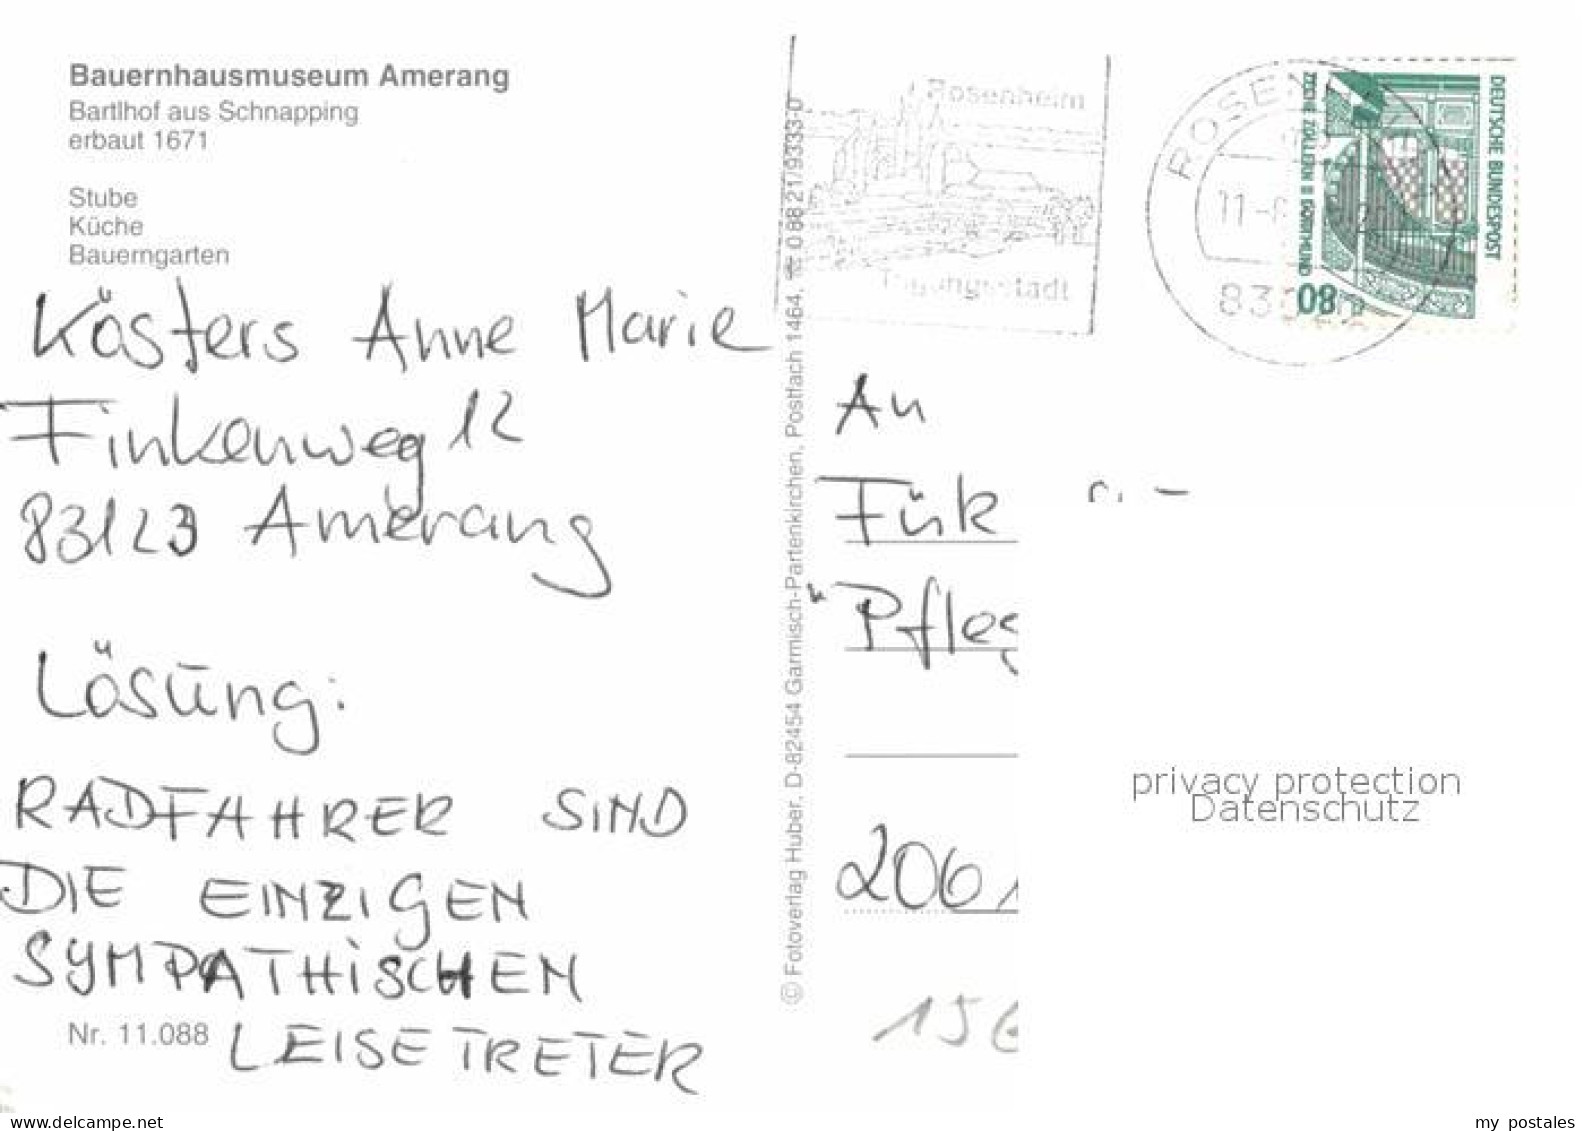 Bauernhausmuseum Amerang
Bartlhof aus Schnapping
erbaut 1671
Stube
Küche
Bauerngarten
Kösters Anne Marie
Finkenweg 12
83123 Amerang
Lösung:
RADFAHRER SIND
DIE EINZIGEN
SYMPATHISCHEN
LEISETRETER
Nr. 11.088
© Fotoverlag Huber, D-82454 Garmisch-Partenkirchen, Postfach 1464, ☏ 0 88 21/9333-0
Rosenheim
Tagungsstadt
ROSEN
11-
83
DEUTSCHE BUNDESPOST
ZECHE ZOLLERN II DORTMUND
80
An
Fük
"Pfleg
206
156
privacy protection
Datenschutz
www.delcampe.net
my postales